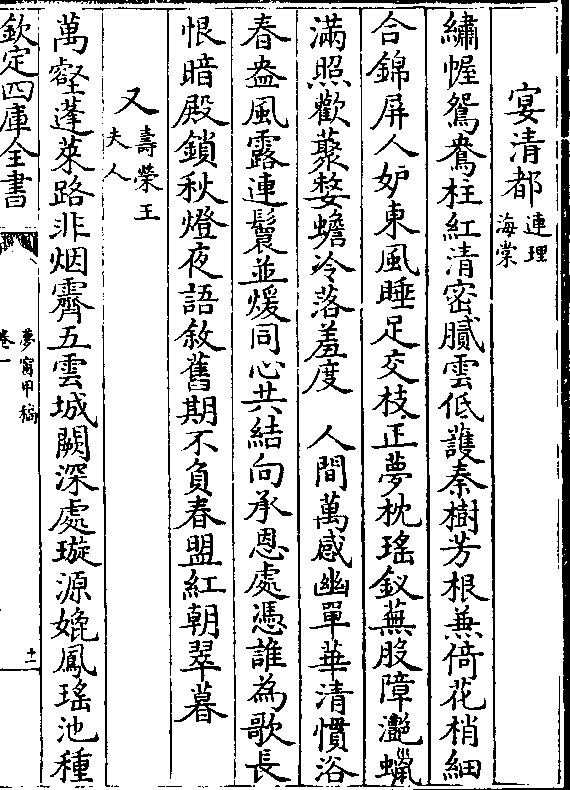 宴清都 連理海棠
繡幄鴛鴦柱紅清密膩雲低護秦樹芳根兼倚花梢細
合錦屏人妒東風睡足交枝正夢枕瑤釵燕股障灧蠟
滿照歡藂嫠蟾冷落羞度 人間萬感幽單華清慣浴
春盎風露連鬟並煖同心共結向承恩處憑誰為歌長
恨暗殿鎖秋燈夜語敘舊期不負春盟紅朝翠暮
又 壽榮王夫人
萬壑蓬萊路非烟霽五雲城闕深處璇源媲鳳瑤池種
欽定四庫全書
夢窗甲稿
卷一
十二